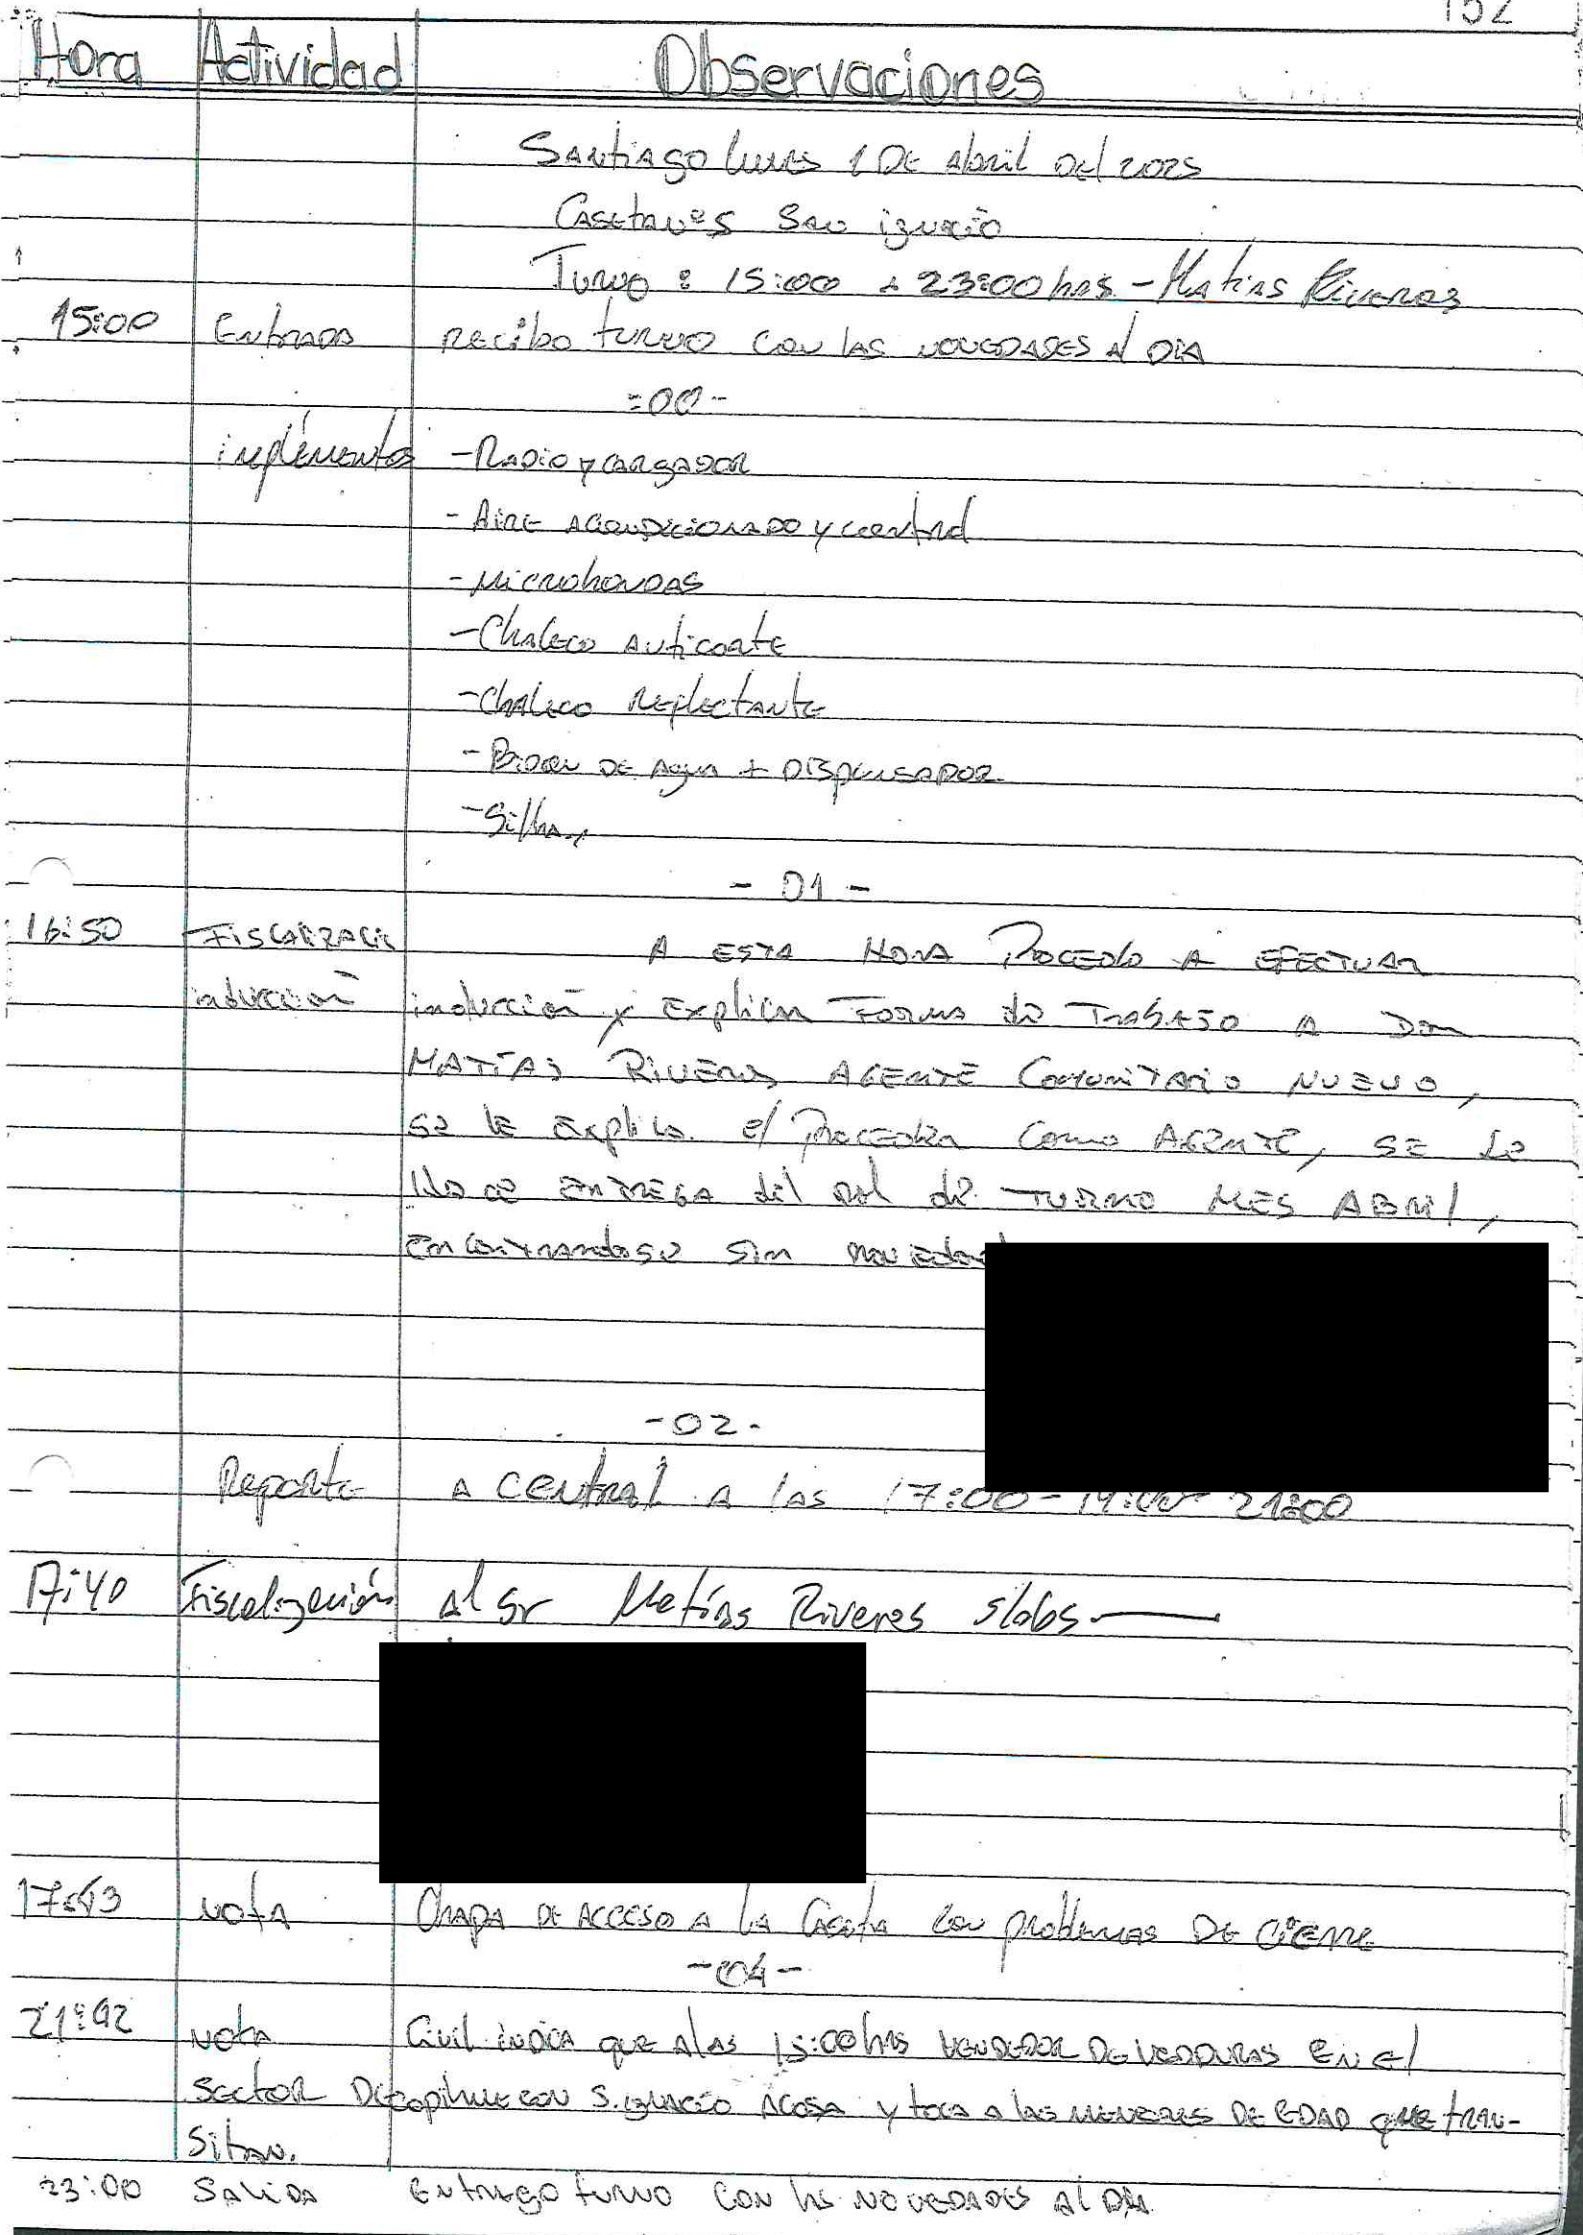 152
Hora Actividad Observaciones
Santiago lunes 1 DE Abril Del 2025
Caseta nº5 San ignacio
Turno : 15:00 a 23:00 hrs. - Matias Riveros
15:00 Entrada recibo turno con las novedades al DIA
=00-
implementos - Radio y cargador
- Aire acondicionado y control
- Microhondas
- Chaleco Anticorte
- Chaleco Reflectante
- Bidon DE Agua + DISpensador
- Silla
- 01 -
16:50 Fiscalizacio A ESTA HORA Procedo A EFECTUAR
inducción inducción y Explicar Forma de TRABAJO A Don
MATÍAS RIVEROS AGENTE COMUNITARIO NUEVO,
se le Explica el Proceder Como AGENTE, SE le
Hace ENTREGA del rol de TURNO MES ABRIL,
Encontrandose Sin novedad
-02-
Reporte A central A las 17:00 - 19:00 - 21:00
17:40 Fiscalización Al Sr Matías Riveros s/obs
17:43 Nota Chapa DE Acceso A la Caseta con problemas DE cierre
-04-
21:42 Nota Civil indica que A las 15:00 hrs VENDEDOR DE VERDURAS EN el
Sector De copihue con S. ignacio Acosa y toca a las menores DE EDAD que tran-
sitan.
23:00 Salida Entrego turno con las NOVEDADES Al DIA